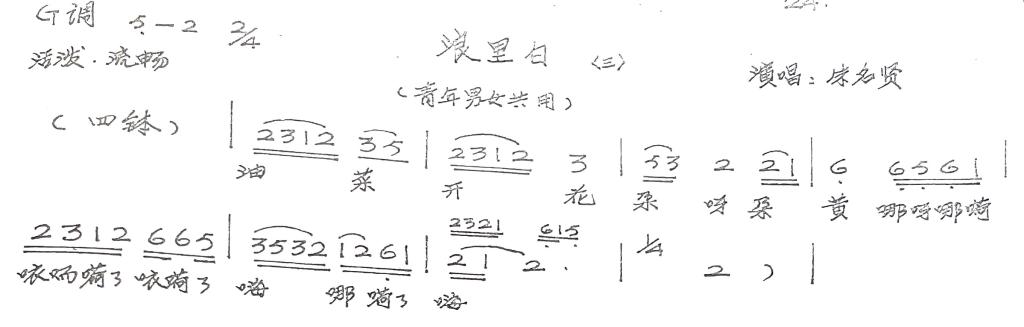 G调 5—2 2/4
24.
活泼.流畅
浪里白 〈三〉
(青年男女共用)
演唱:宋名贤
(四钵) | 2312 35 | 2312 3 | 53 2 21 | 6 6561 |
油 菜 开 花 朵 呀 朵 黄 哪呀哪嗬
2321 615
2312 665 | 3532 1261 | 21 2. | 1/4 2 ) |
咳 嗬了 咳嗬了 嗨 哪 嗬了 嗨